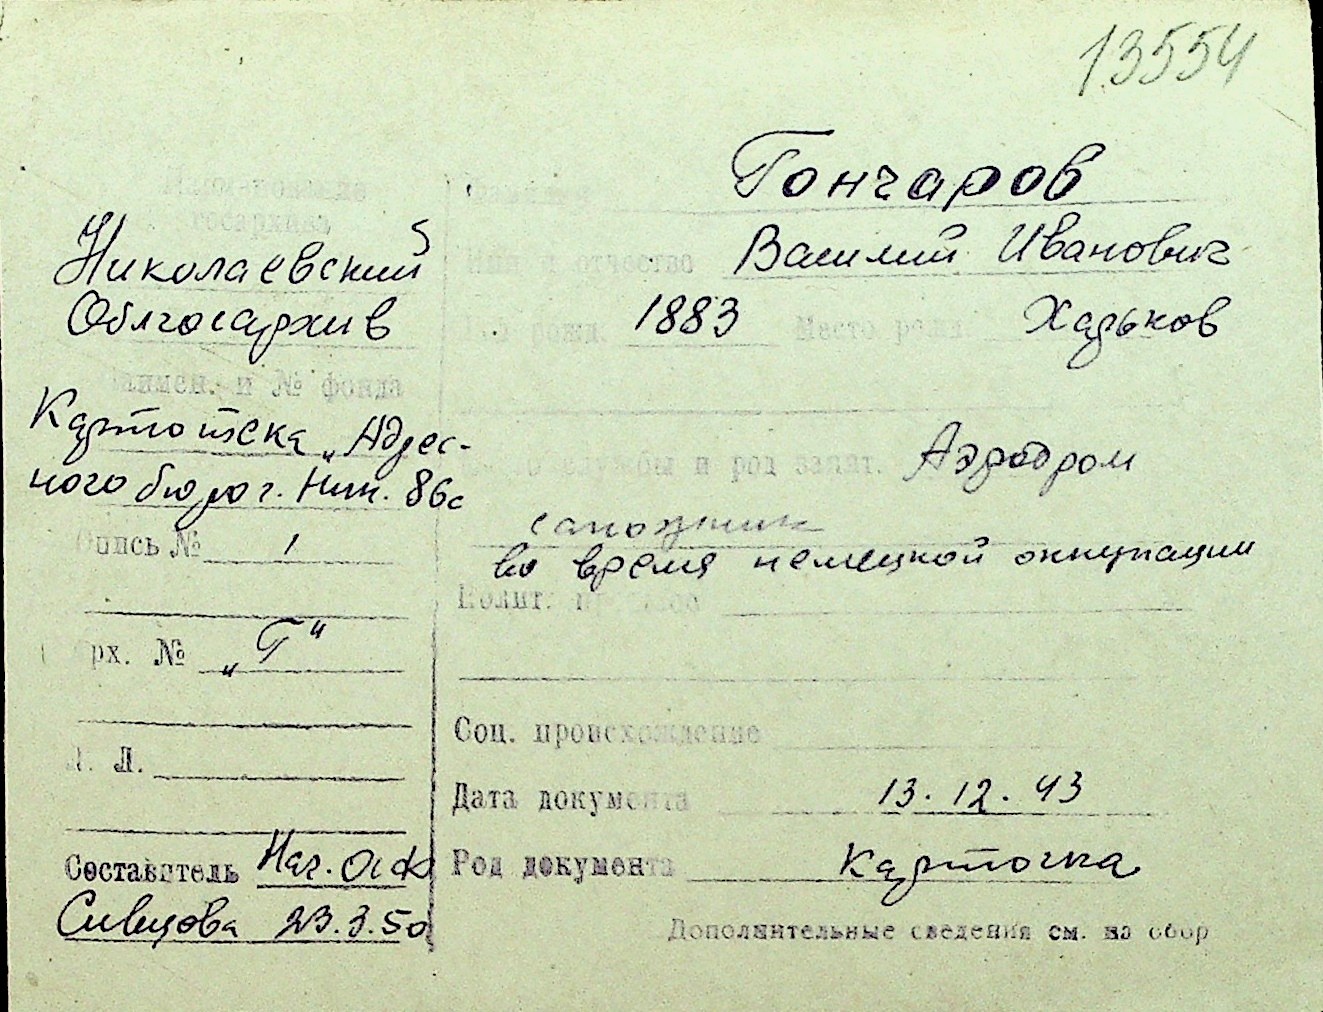 13554
Наим-нование
госархива
Николаевский
Облгосархив
Наимен. и № фонда
Картотека „Адрес-
ного бюро г. Ник. 86с
Опись № 1
Арх. № „Г“
Л. Л.
Составитель Нач. ОИФ
Сивцова 23.3.50
Фамилия Гончаров
Имя и отчество Василий Иванович
Год рожд. 1883 Место рожд. Харьков
службы и род занят. Аэродром
сапожник
во время немецкой оккупации
Полит.
Соц. происхождение
Дата документа 13.12.43
Род документа карточка
Дополнительные сведения см. на обор